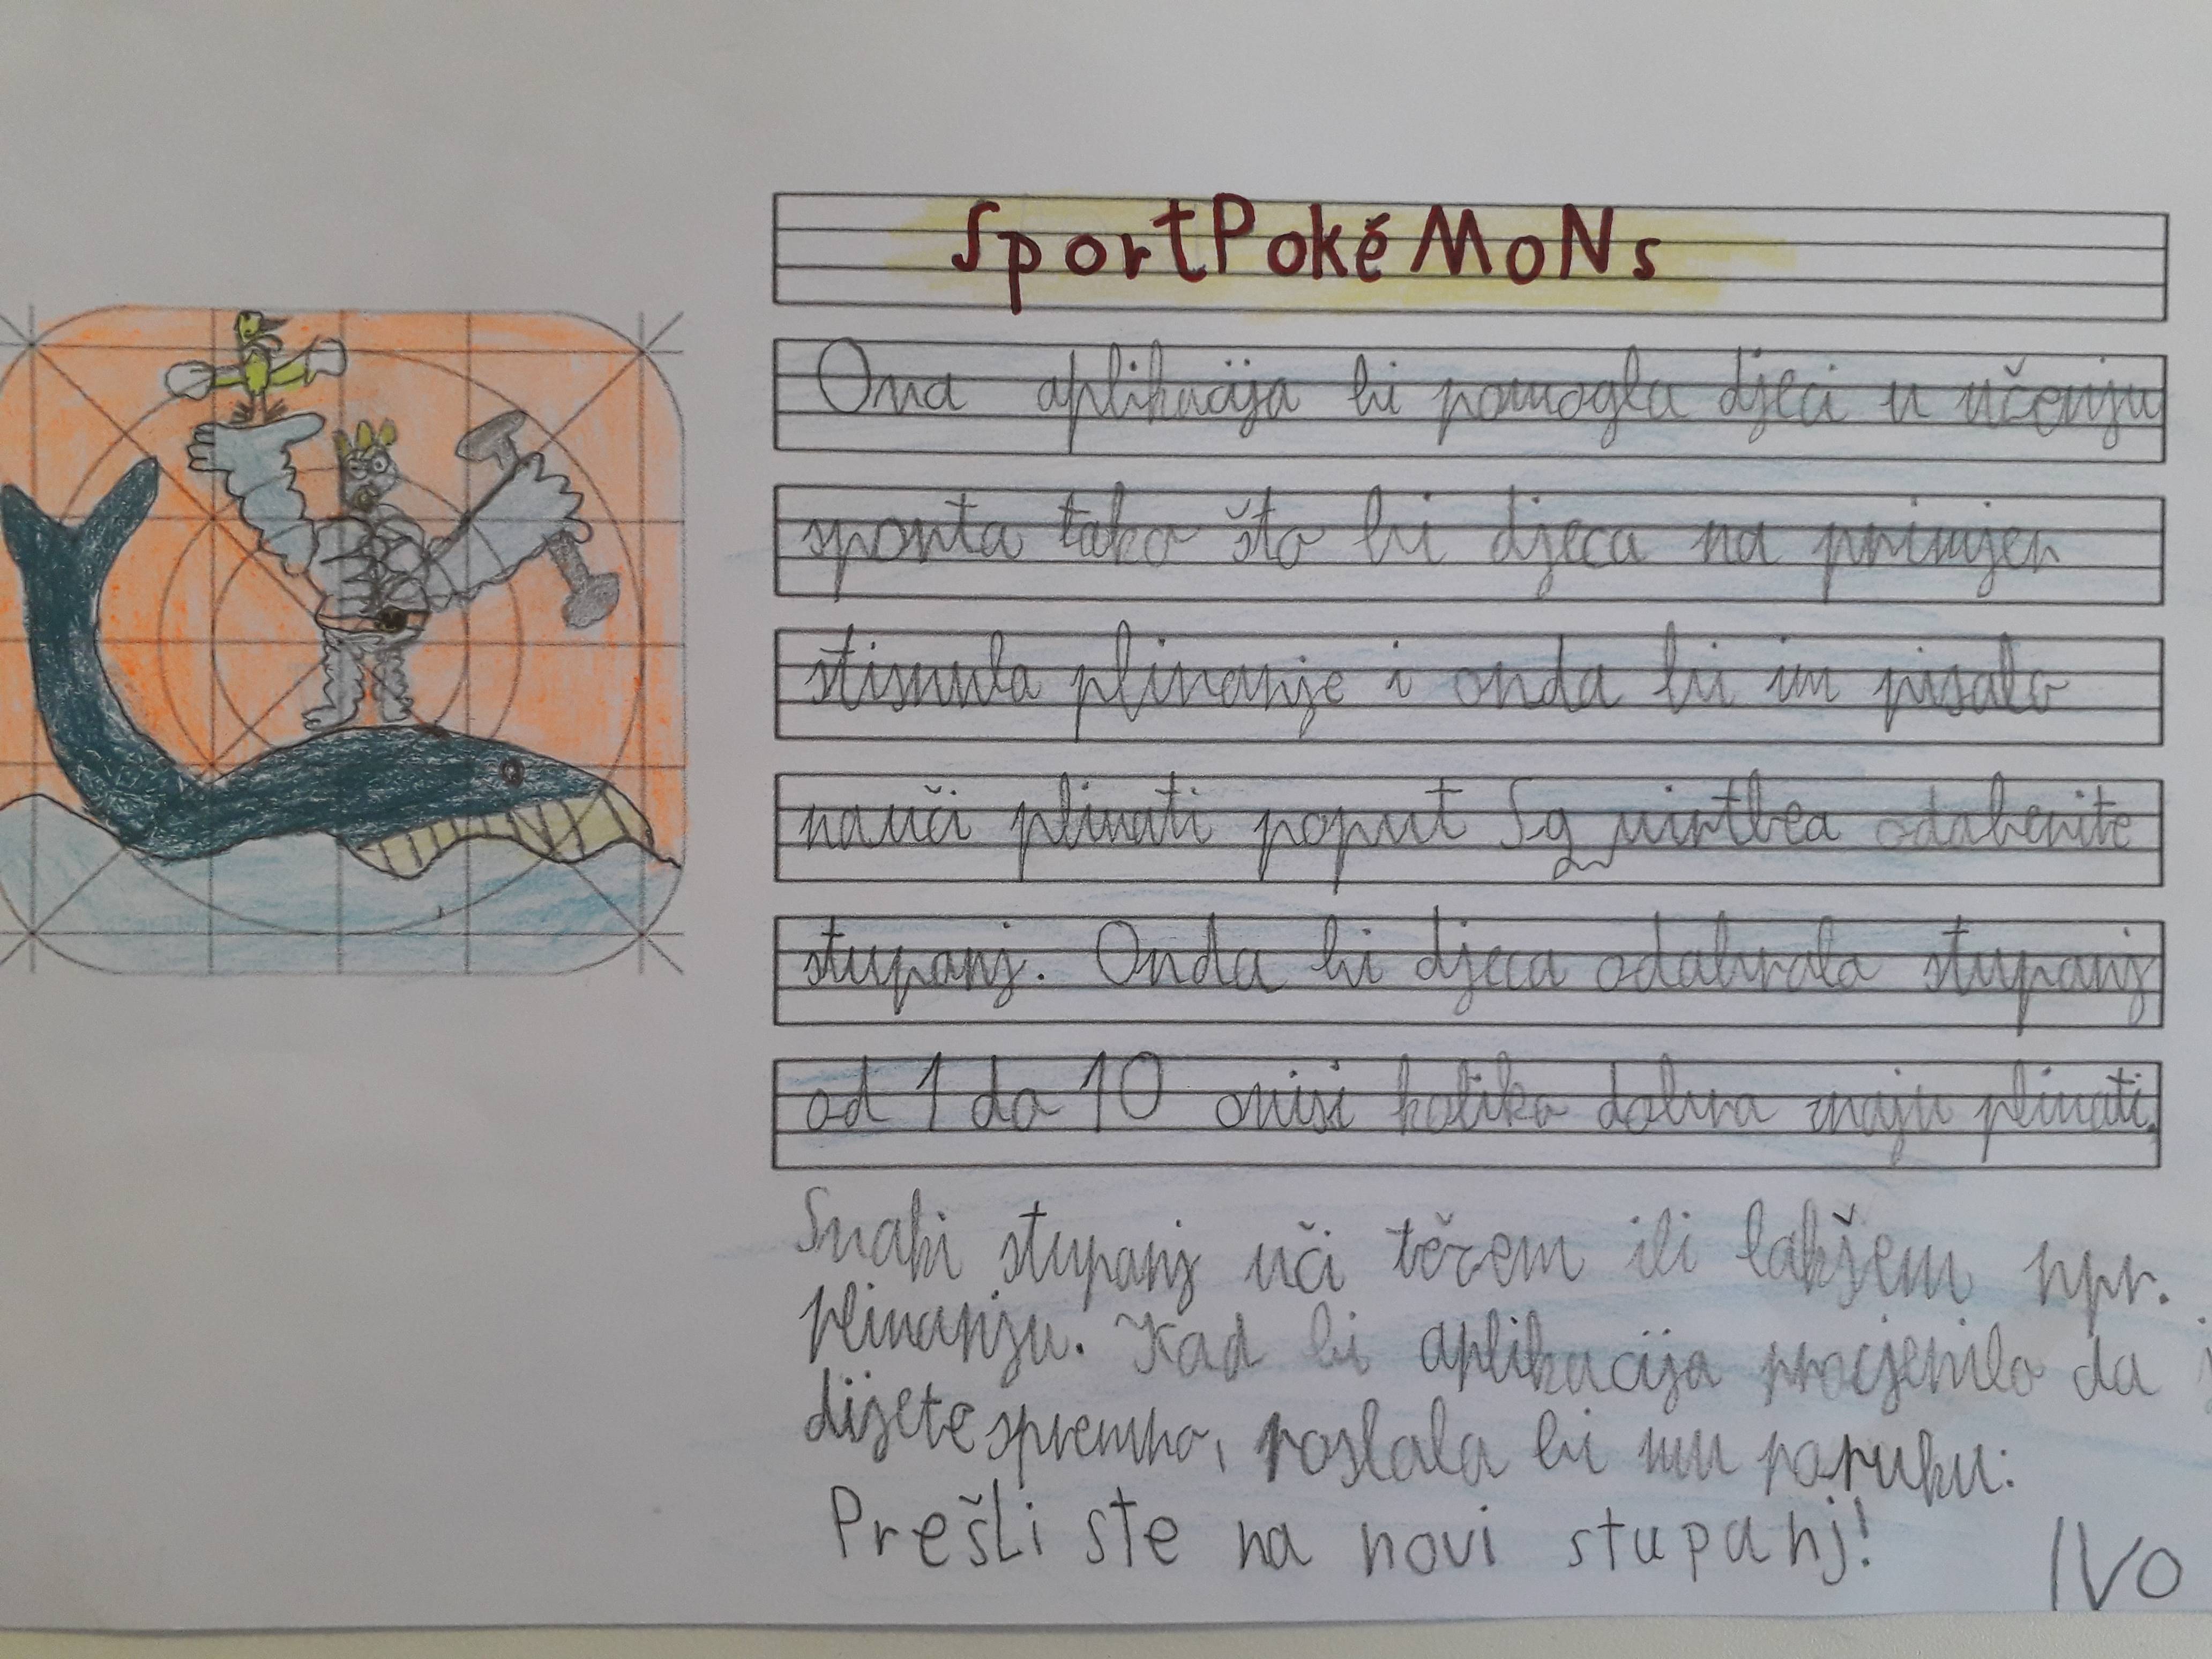 SportPokéMoNs
Ova aplikacija bi pomogla djeci u učenju
sporta tako što bi djeca na primjer
stisnula plivanje i onda bi im pisalo
nauči plivati poput Squirtlea odaberite
stupanj. Onda bi djeca odabrala stupanj
od 1 do 10 ovisi koliko dobro znaju plivati.
Svaki stupanj uči težem ili lakšem npr.
plivanju. Kad bi aplikacija procjenila da
dijete spremno, poslala bi mu poruku:
Prešli ste na novi stupanj!
IVO